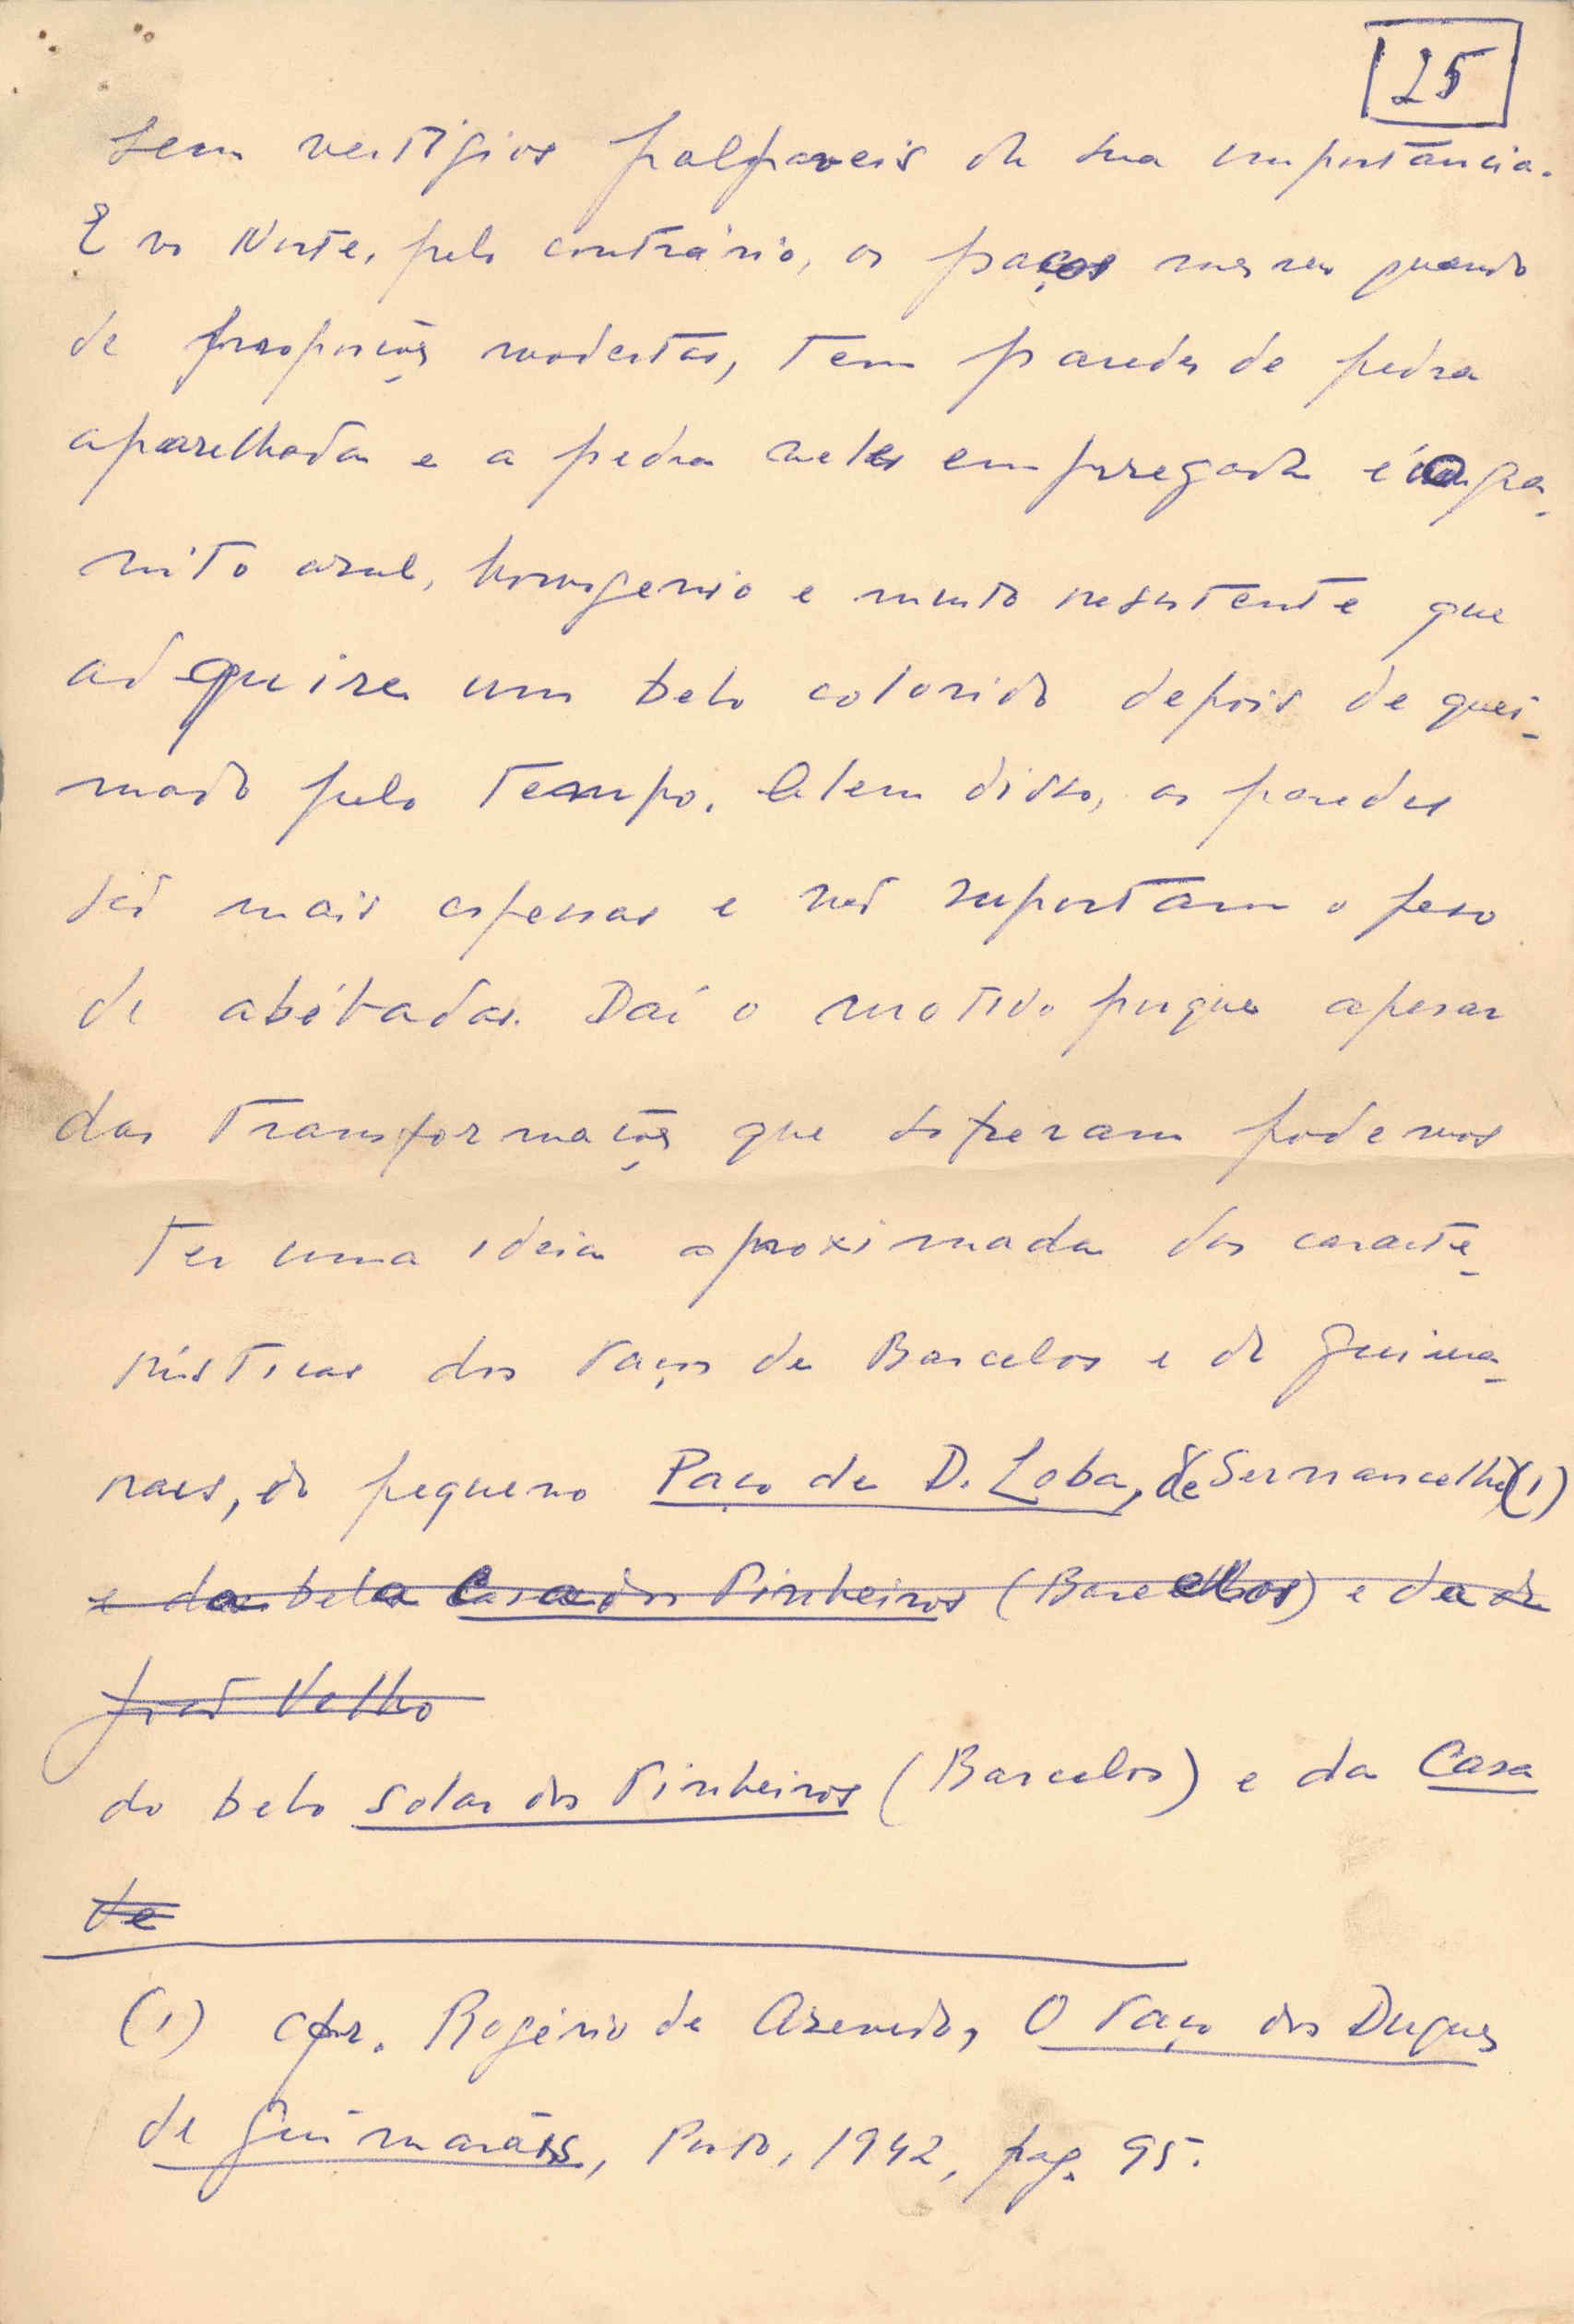 25
sem vestigios palpaveis da sua importância.
E no Norte, pelo contrário, os paços mesmo quando
de proporções modestas, tem paredes de pedra
aparelhada e a pedra neles empregada é o gra-
nito azul, homogenio e muito resistente que
adquire um belo colorido depois de quei-
mado pelo tempo. Alem disso, as paredes
são mais espessas e não suportam o peso
de abóbadas. Daí o motivo porque apesar
das transformações que sofreram podemos
ter uma ideia aproximada das caracte-
rísticas dos Paços de Barcelos e de Guima-
raes, do pequeno Paço de D. Loba, de Sernancelhe (1)
e da bela Casa dos Pinheiros (Barcellos) e da de
João Velho
do belo solar dos Pinheiros (Barcelos) e da Casa
Ve
(1) Cfr. Rogério de Azevedo, O Paço dos Duques
de Guimarães, Porto, 1942, pag. 95.